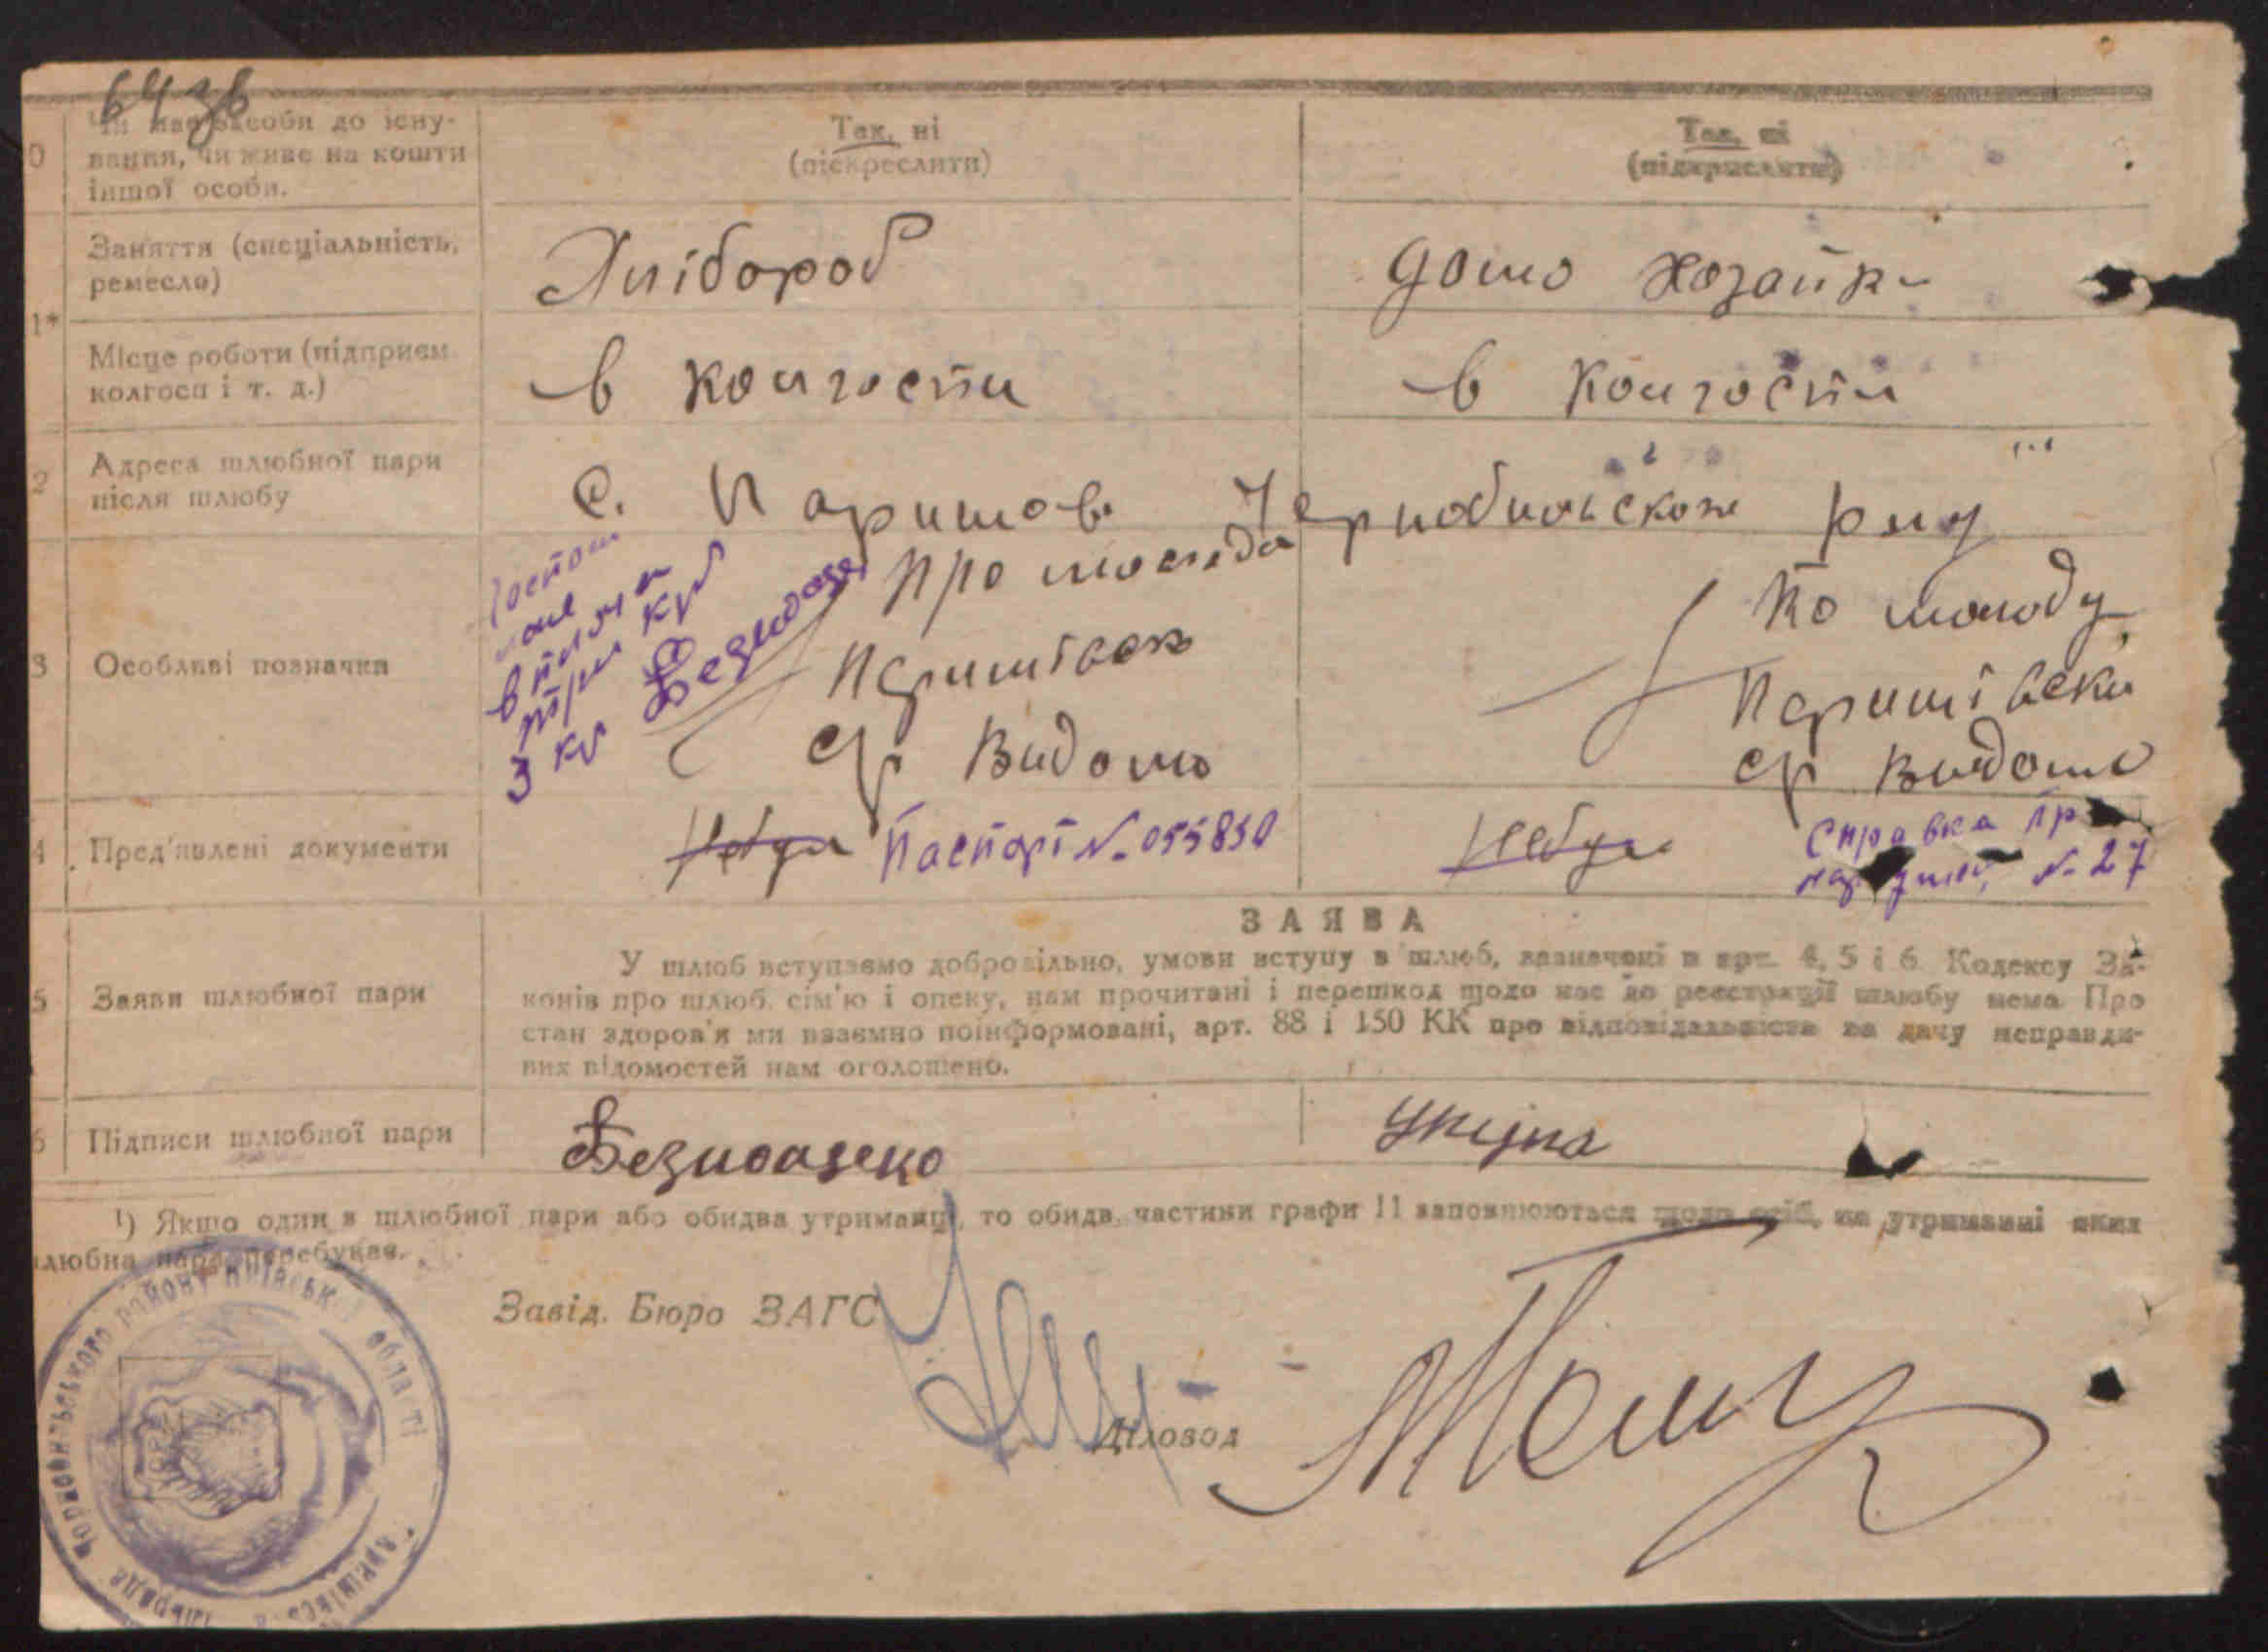 64 зв
0 Чи має засоби до існу-
вання, чи живе на кошти
іншої особи.
Так, ні
(піскреслити)
Так, ні
(підкреслити)
1* Заняття (спеціальність,
ремесло)
Хлібороб
домо хозайк
Місце роботи (підприєм.
колгосп і т. д.)
в колгоспи
в колгоспи
2 Адреса шлюбної пари
після шлюбу
с. Паришов Чернобильского р-ну
3 Особливі позначки
в
три
3
Про молода
Паришівск
ср Видомо
По молоду
Паришівски
ср видомо
4 Пред'явлені документи
Небул Паспорт №. 055850
Небул
Справка пр
№. 27
ЗАЯВА
5 Заяви шлюбної пари
У шлюб вступаємо добровільно, умови вступу в шлюб, зазначені в арт. 4, 5 і 6 Кодексу За-
конів про шлюб, сім'ю і опеку, нам прочитані і перешкод щодо нас до реєстрації шлюбу нема Про
стан здоров'я ми взаємно поінформовані, арт. 88 і 150 КК про відповідальність за дачу неправди-
вих відомостей нам оголошено.
6 Підписи шлюбної пари
1) Якщо один з шлюбної пари або обидва утриманці, то обидв. частини графи 11 заповнюються щодо осіб, на утриманні яких
шлюбна пара перебуває.
Завід. Бюро ЗАГС
Діловод
Чорнобильського району Київської області